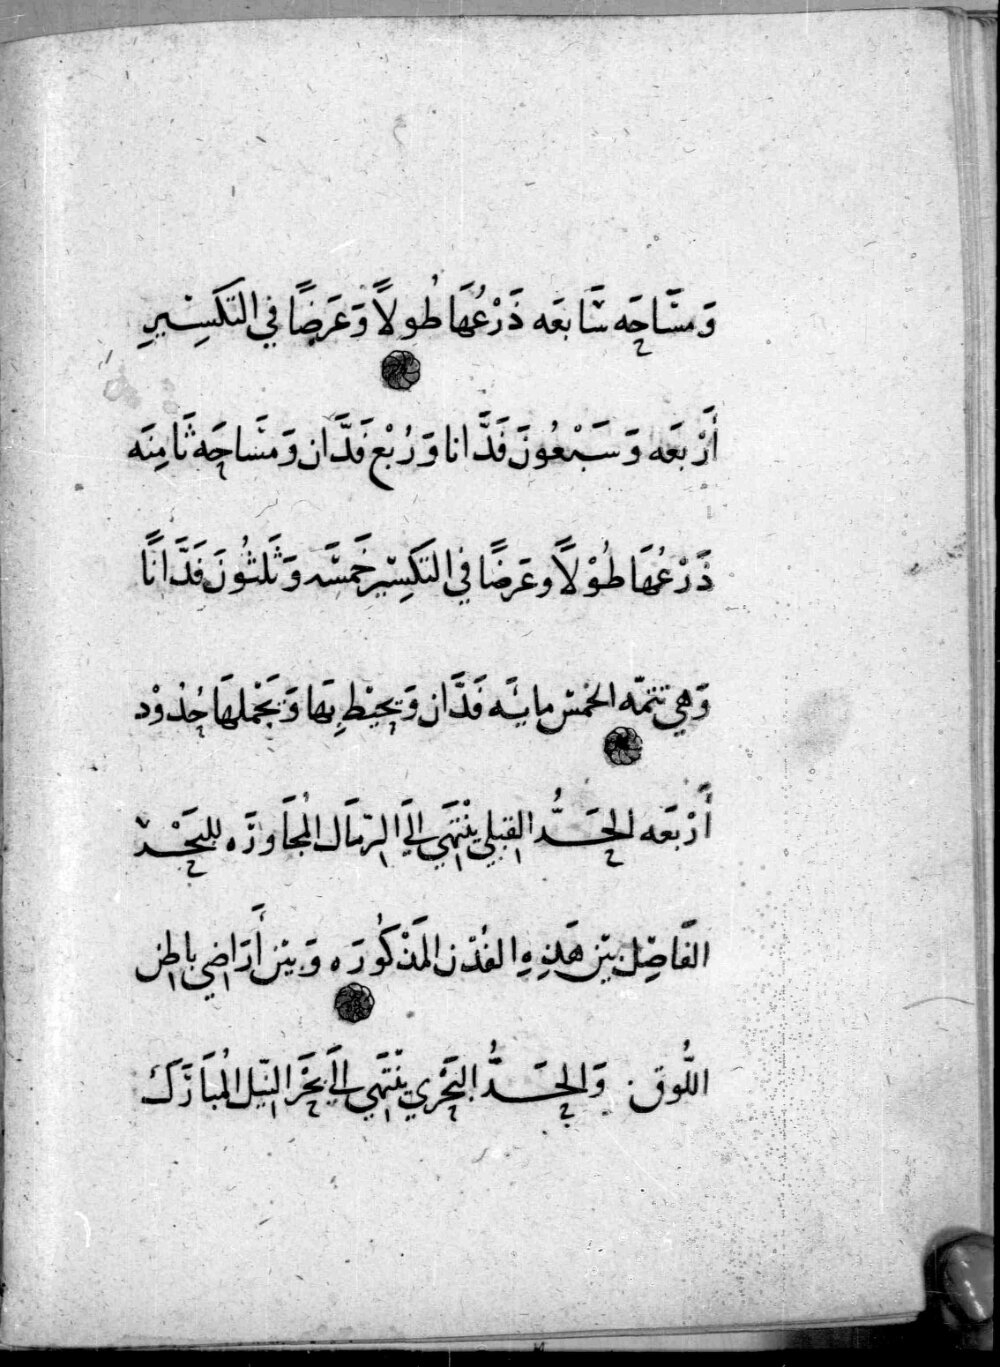 وَمسَّاحَه سَّابعَه ذَرْعُهَا طُولاً وَعَرضًا في التكسِيرِ
أَرْبعَه وَسَبْعُونَ فَدَّانا وَرُبْع فَدَّان وَمسَاحَه ثَامِنَه
ذَرْعُهَا طُوْلاً وعَرضًا في التكسِير خَمسَّه وَثَلثُونَ فَدَّانًا
وَهي تتمّه الخمْس مايَه فَدَّان وَيحيْط بِهَا وَبجْملهَا حُدوْد
أَرْبَعَه الحَدُّ القبلي ينْتَهي الَي الرّمَال المُجَاورَه للبَحْر
الفَاصِل بيْن هَذِهِ الفُدْن المَذكُورَه وَبيْن أَرَاضِي باطن
اللُّوق وَالحَدُّ البَحْري ينْتَهي الَي بحْر النيْل المُبَارَك